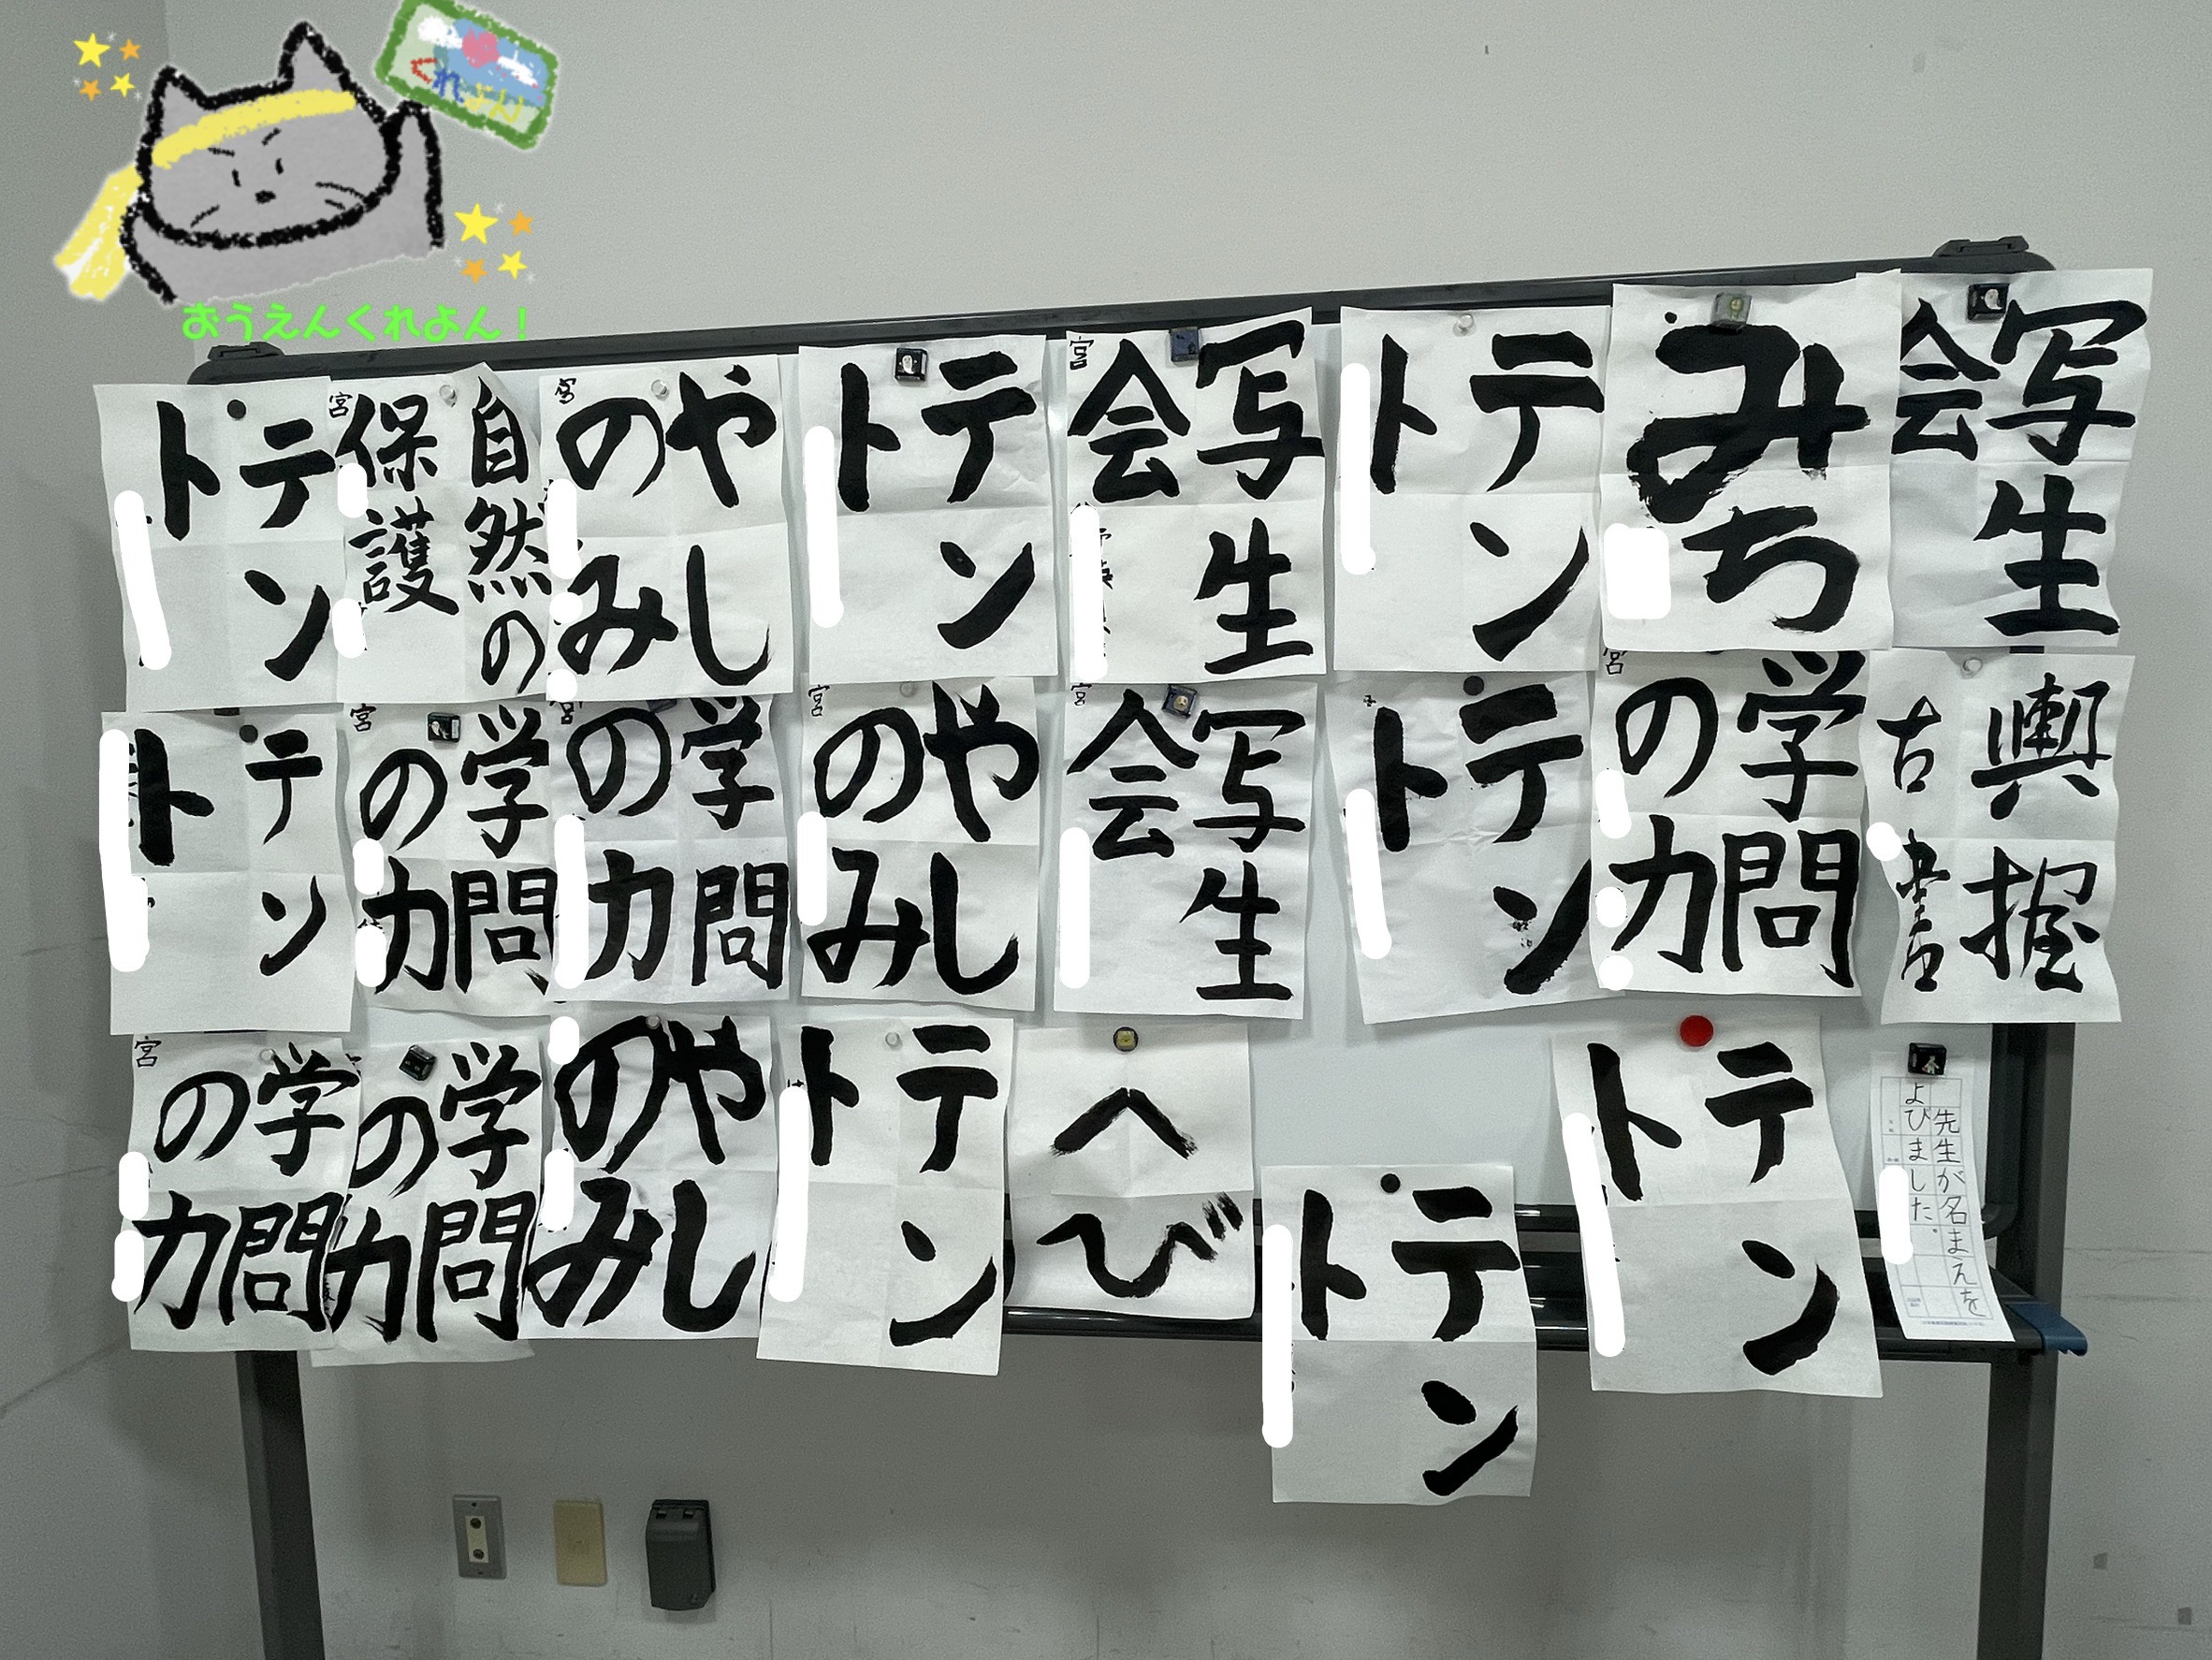 くれよん
おうえんくれよん！
テント
宮
自然の
保護
宮
やし
のみ
テント
宮
写生
会
テント
みち
写生
会
テント
宮
学問
の力
宮
学問
の力
宮
やし
のみ
宮
写生
会
テント
宮
学問
の力
握
古
書
宮
学問
の力
学問
の力
やし
のみ
テント
へび
テント
テント
先生が名まえを
よびました。